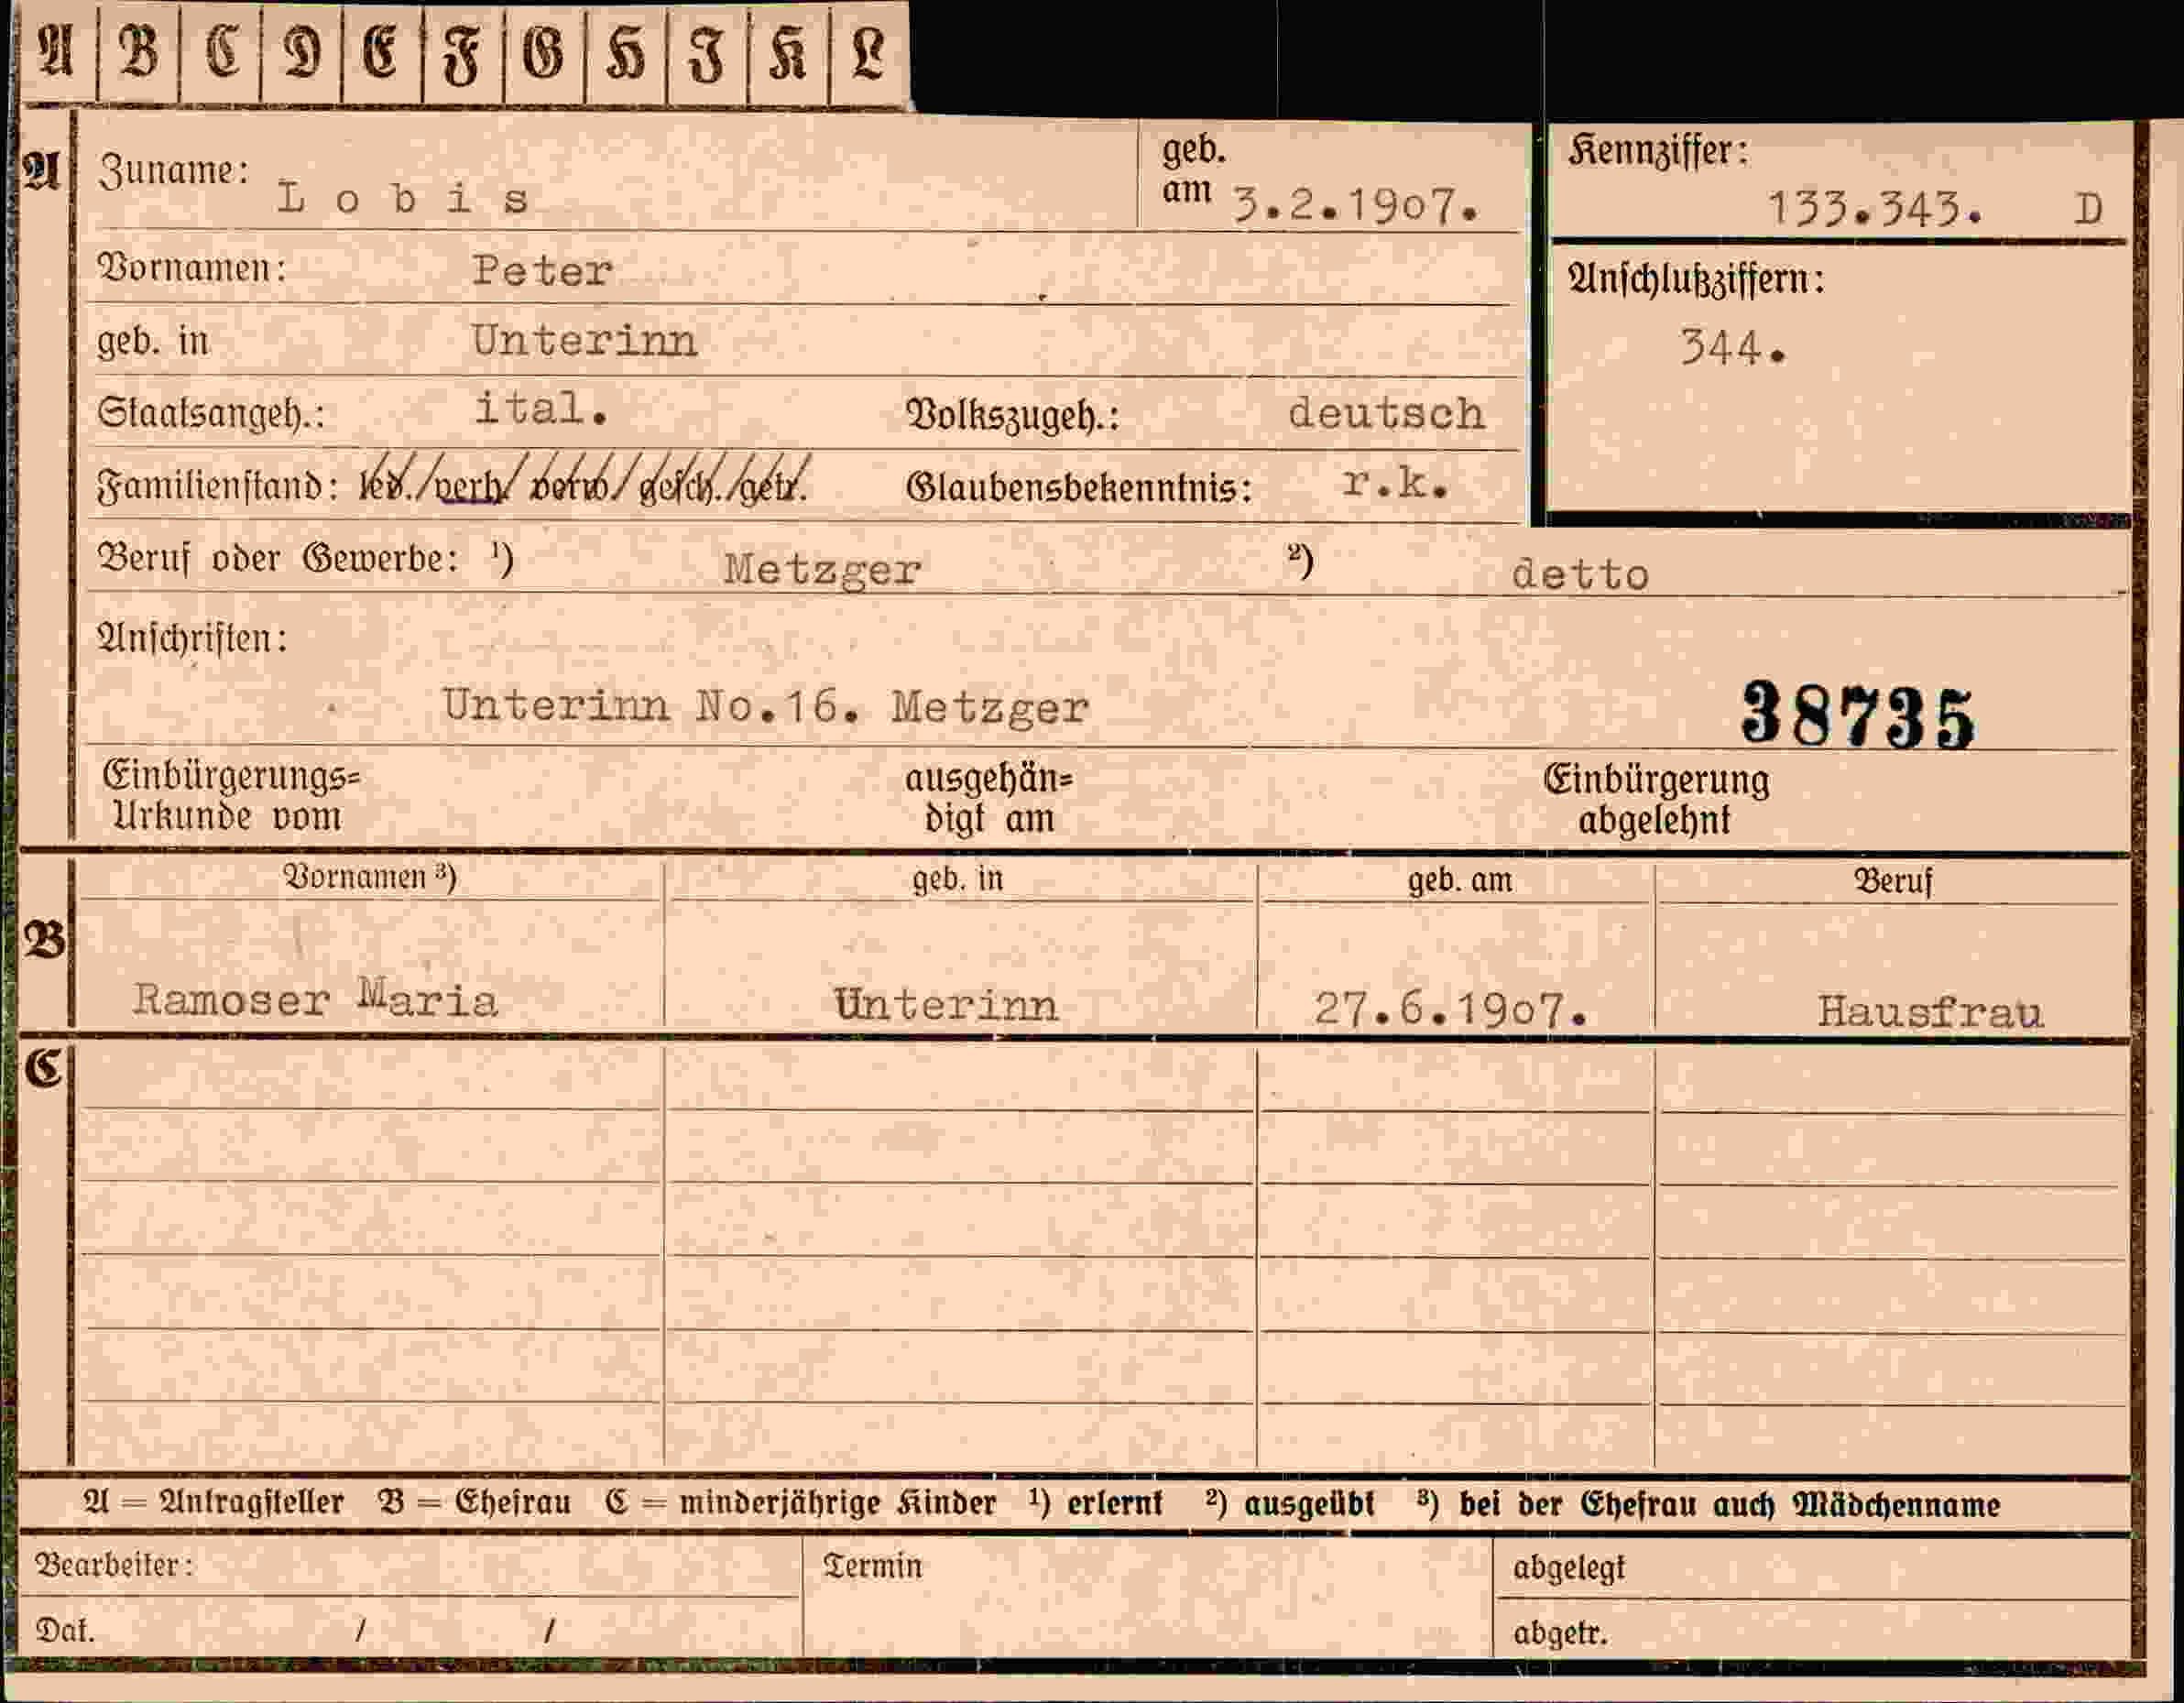 A B C D E F G H I K L
A Zuname: Lobis geb. am 3.2.19o7. Kennziffer: 133.343. D
Vornamen: Peter Anschlußziffern:
geb. in Unterinn 344.
Staatsangeh.: ital. Volkszugeh.: deutsch
Familienstand: led./verh/ verw/gesch./getr. Glaubensbekenntnis: r.k.
Beruf oder Gewerbe: ¹) Metzger ²) detto
Anschriften:
Unterinn No.16. Metzger 38735
Einbürgerungs= ausgehän= Einbürgerung
Urkunde vom digt am abgelehnt
Vornamen ³) geb. in geb. am Beruf
B
Ramoser Maria Unterinn 27.6.19o7. Hausfrau
C
A = Antragsteller B = Ehefrau C = minderjährige Kinder ¹) erlernt ²) ausgeübt ³) bei der Ehefrau auch Mädchenname
Bearbeiter: Termin abgelegt
Dat. / / abgetr.